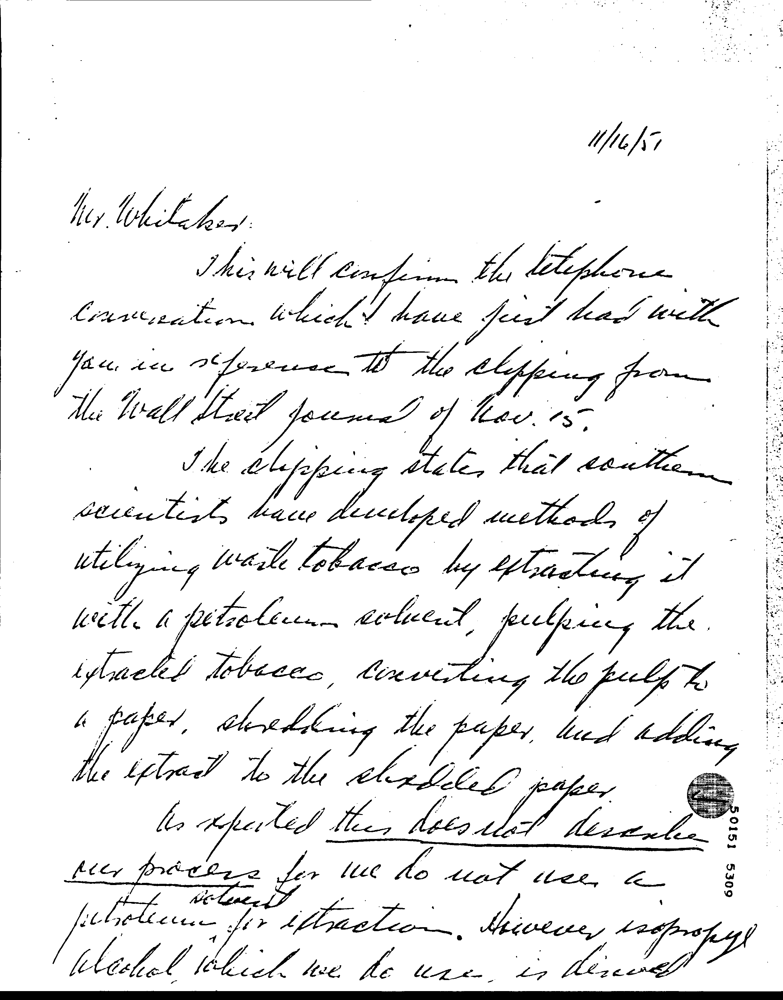 11/16/51
Mr. Whitaker:
This will confirm the telephone
conversation which I have just had with
you in reference to the clipping from
the Wall Street Journal of Nov. 15.
The clipping states that southern
scientists have developed methods of
utilizing waste tobacco by extracting it
with a petroleum solvent, pulping the
extracted tobacco, converting the pulp to
a paper, shredding the paper, and adding
the extract to the shredded paper.
As reported this does not describe
our process for we do not use a
petroleum solvent for extraction. However isopropyl
alcohol, which we do use, is derived
50151 5309